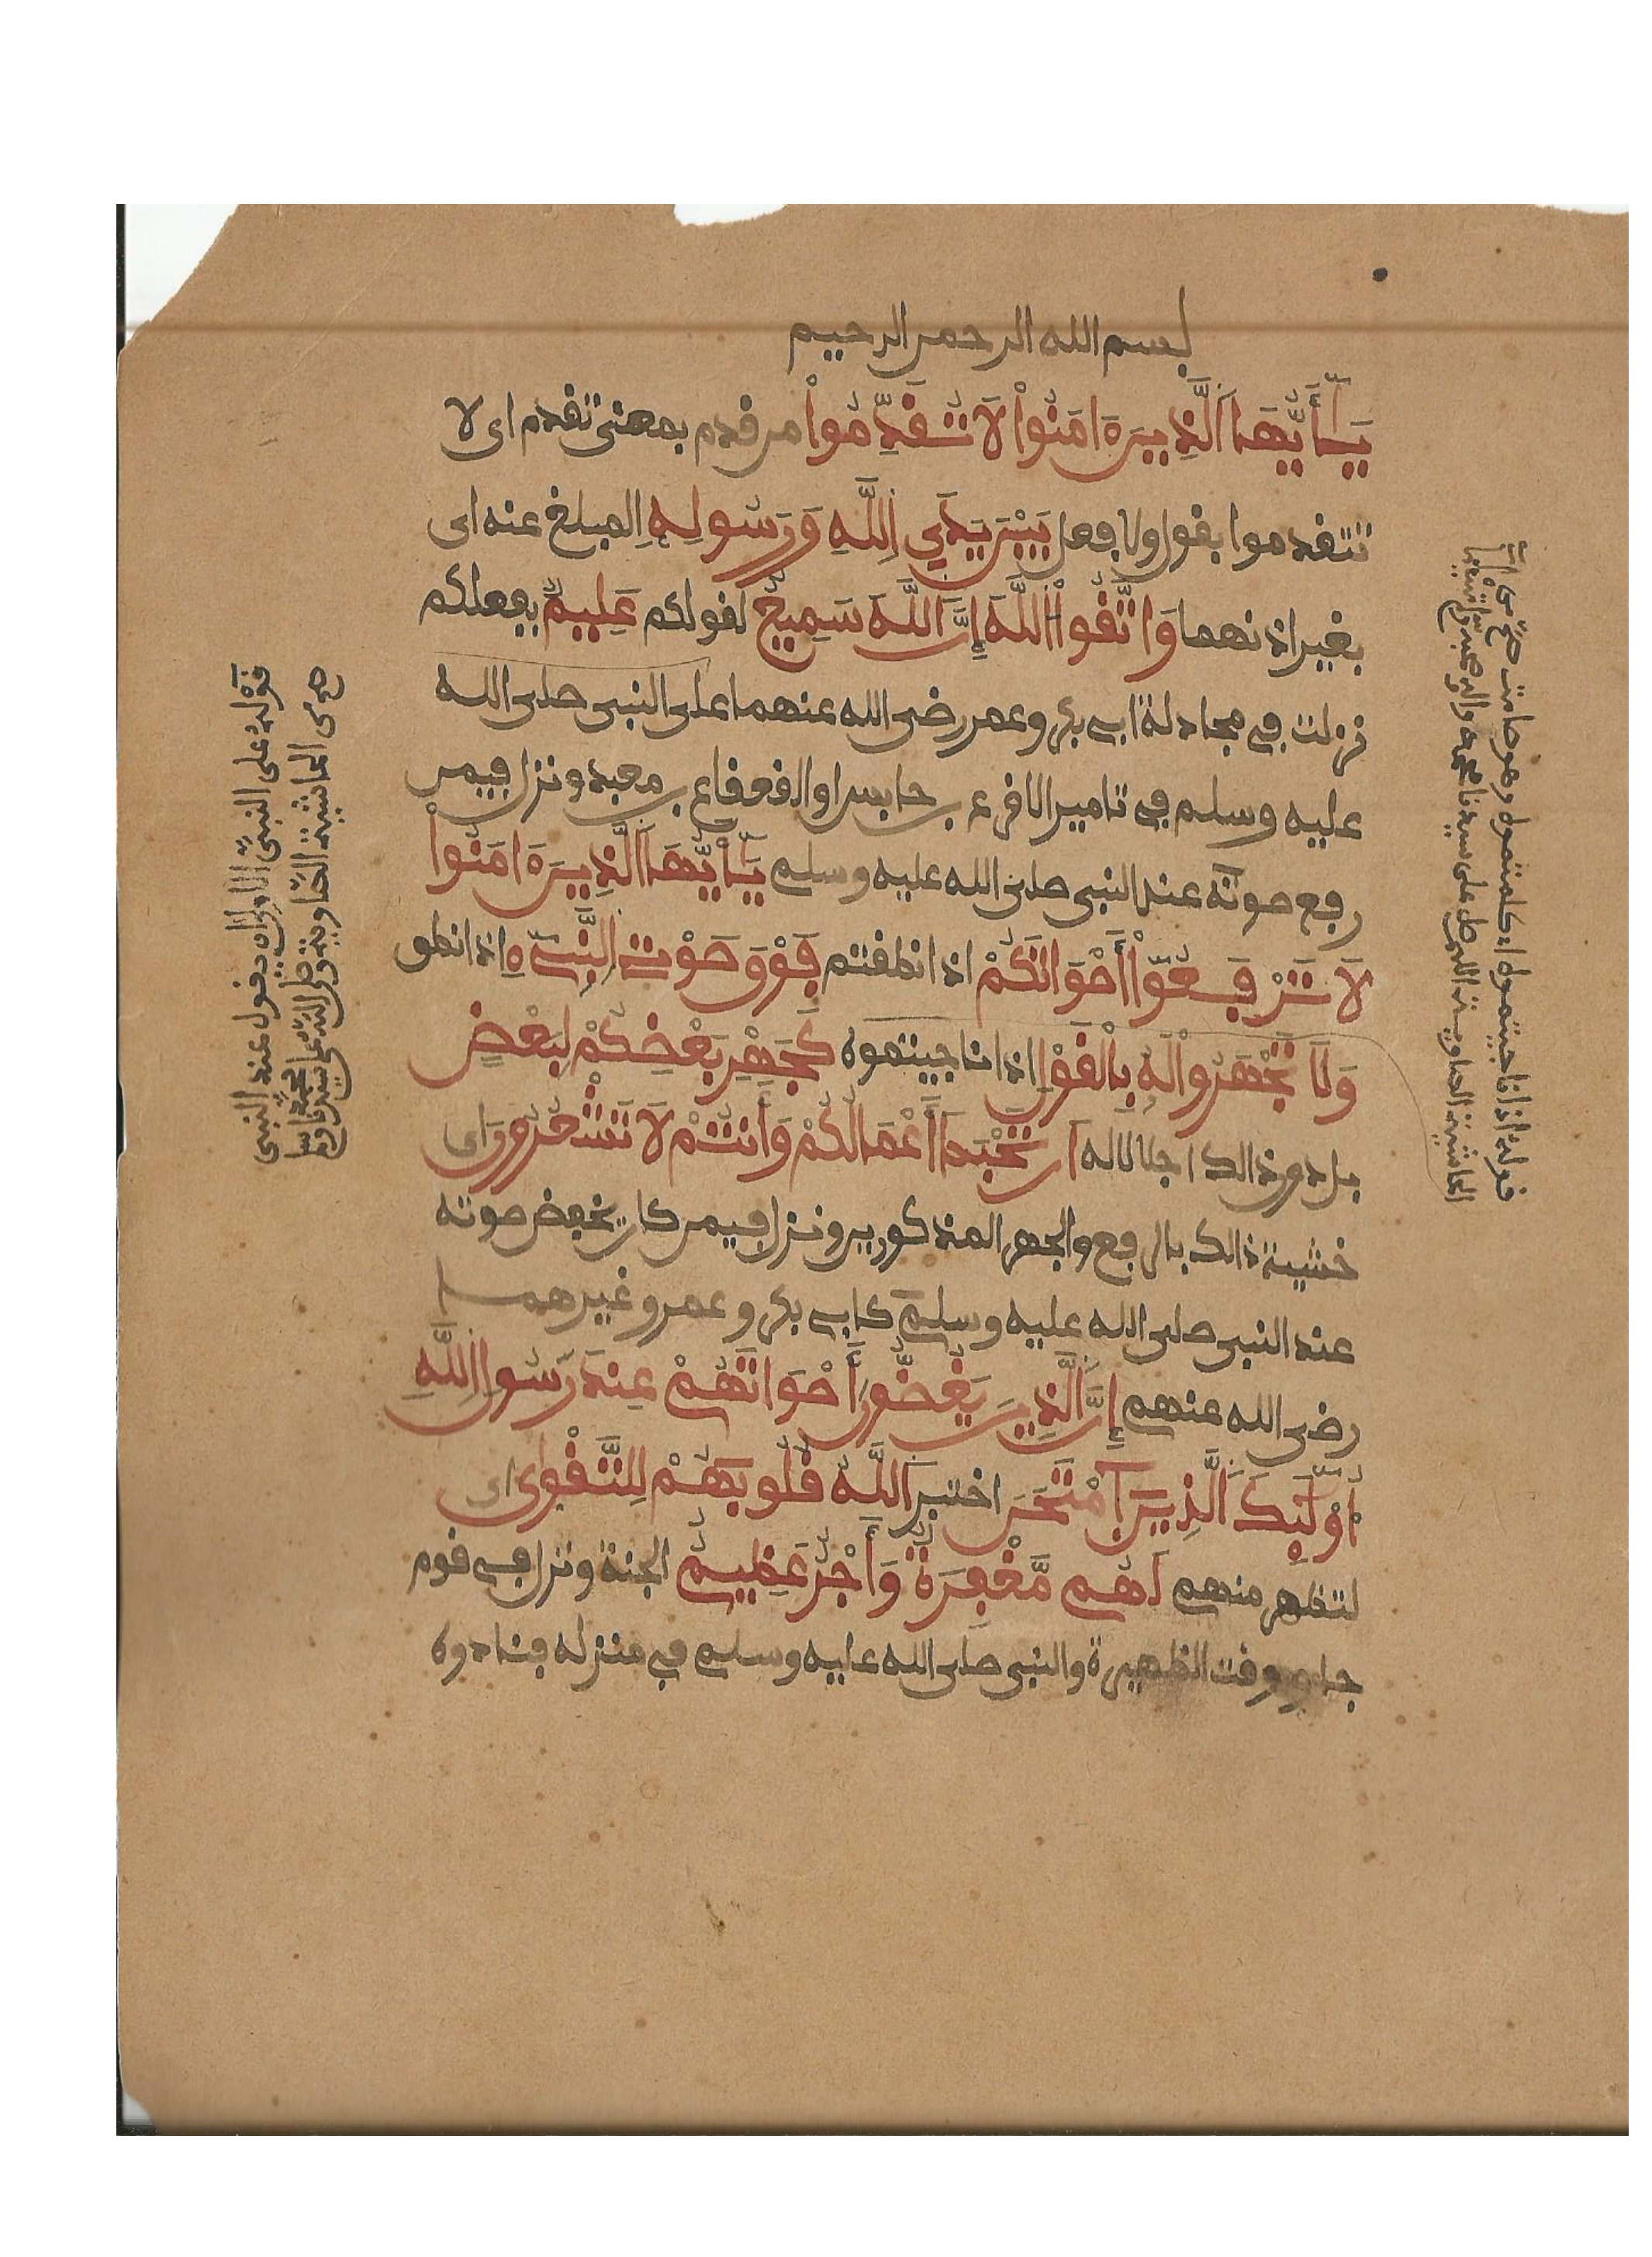 بسم الله الرحمن الرحيم
يَـٰأَيُّهَا اَلَّذِينَ ءَامَنُواْ لَا تُقَدِّمُواْ من قدم بمعنى تقدم اى لا
تتقدموا بقول ولا فعل بَيْنَ يَدَيِ اِللَّهِ وَرَسُولِهِ المبلغ عنه اى
بغير اذنهما وَاتَّقُواْ اللَّهَ إِنَّ اَللَّهَ سَمِيعٌ لقولكم عَلِيمٌ بفعلكم
نزلت في مجادلة ابي بكر وعمر رضى الله عنهما على النبى صلى الله
عليه وسلم في تامير الاقرع بن حابس او القعقاع بن معبد ونزل فيمن
رفع صوته عند النبى صلى الله عليه وسلم يَـٰأَيُّهَا اَلَّذِينَ ءَامَنُواْ
لَا تَرْفَعُواْ أَصْوَاتَكُمْ اذا نطقتم فَوْقَ صَوْتِ اِلنَّبِىِٕ اذا نطق
وَلَا تَجْهَرُواْ لَهُ بِالْقَوْلِ اذا ناجيتموه كَجَهْرِ بَعْضِكُمْ لِبَعْضٍ
بل دون ذالك اجلالا له أَن تَحْبَطَ أَعْمَالُكُمْ وَأَنتُمْ لَا تَشْعُرُونَ اى
خشية ذالك بالرفع والجهر المذكورين ونزل فيمن كان يخفض صوته
عند النبى صلى الله عليه وسلم كابي بكر وعمر وغيرهما
رضى الله عنهم إِنَّ اَلَّذِينَ يَغُضُّونَ أَصْوَاتَهُمْ عِندَ رَسُولِ اِللَّهِ
أُوْلَٰٓئِكَ اَلَّذِينَ اَمْتَحَنَ اختبر اَللَّهُ قُلُوبَهُمْ لِلتَّقْوَىٰ اى
لتظهر منهم لَهُم مَّغْفِرَةٌ وَأَجْرٌ عَظِيمٌ الجنة ونزل في قوم
جاءو وقت الظهيرة والنبى صلى الله عليه وسلم في منزله فنادوه
قوله اذا ناجيتموه اى كلمتموه وهو صامت
الحاشية الصاوية اللهم صل على سيدنا محمد واله وصحبه وسلم تسليما
قوله على النبى الاولى ان يقول عند النبى
من الحاشية الصاوية